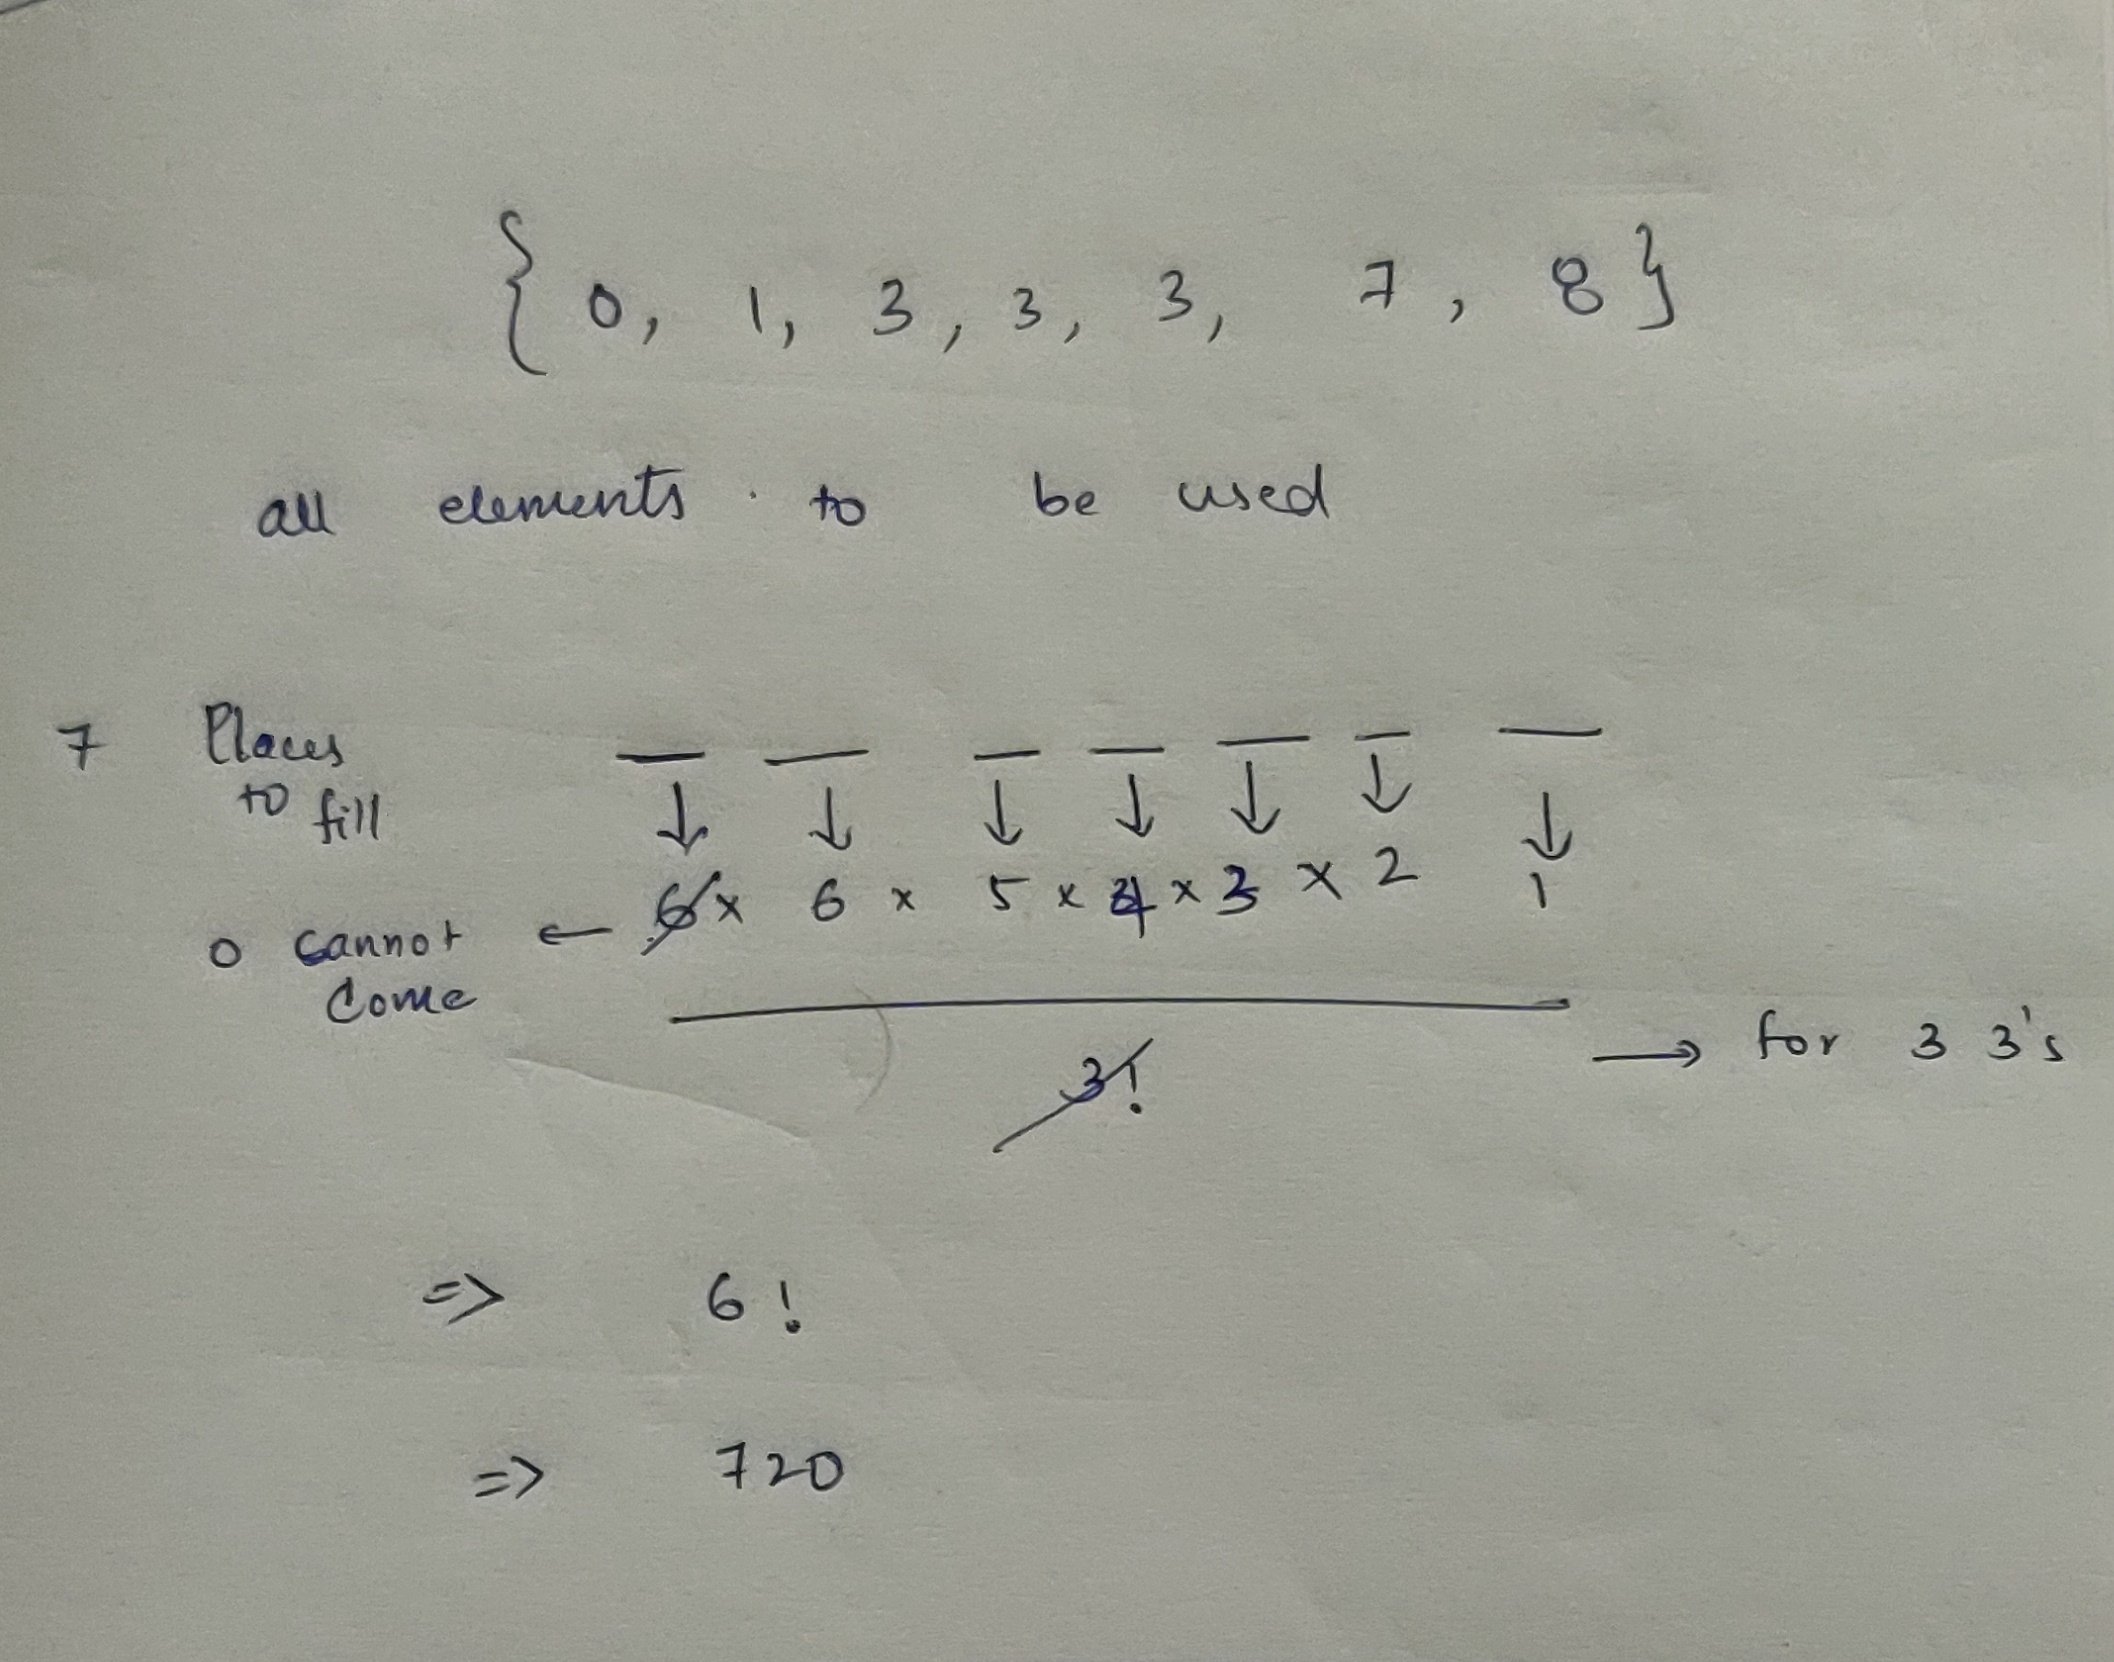 { 0, 1, 3, 3, 3, 7, 8 }
all elements to be used
7 Places to fill — — — — — — —
↓ ↓ ↓ ↓ ↓ ↓ ↓
0 cannot come ← 6 x 6 x 5 x 4 x 3 x 2 1
3! → for 3 3's
=> 6!
=> 720